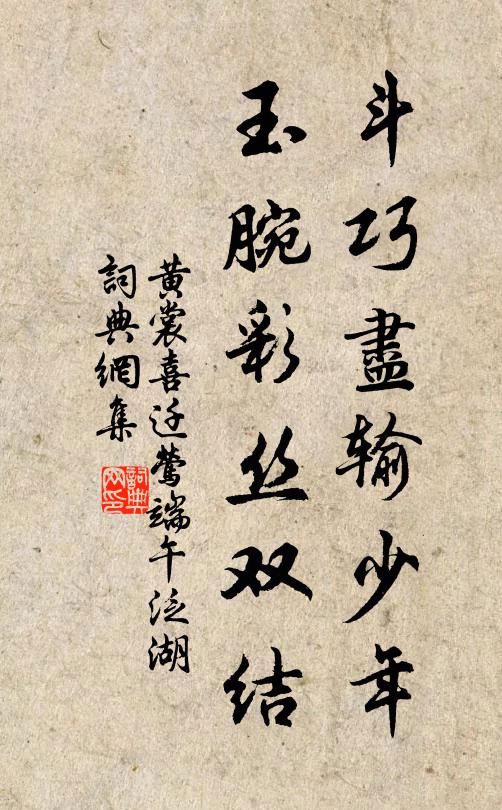 斗巧盡输少年
玉腕彩丝双结
黄裳喜迁莺端午泛湖
詞典網集
詞典网印